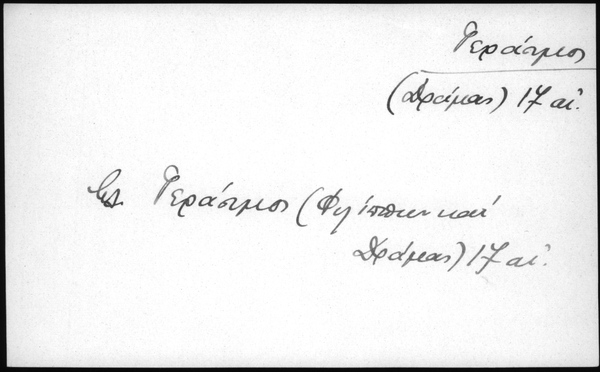 Γεράσιμος
(Δράμας) 17 αἰ.
βλ. Γεράσιμος (Φιλίππων καὶ
Δράμας) 17 αἰ.